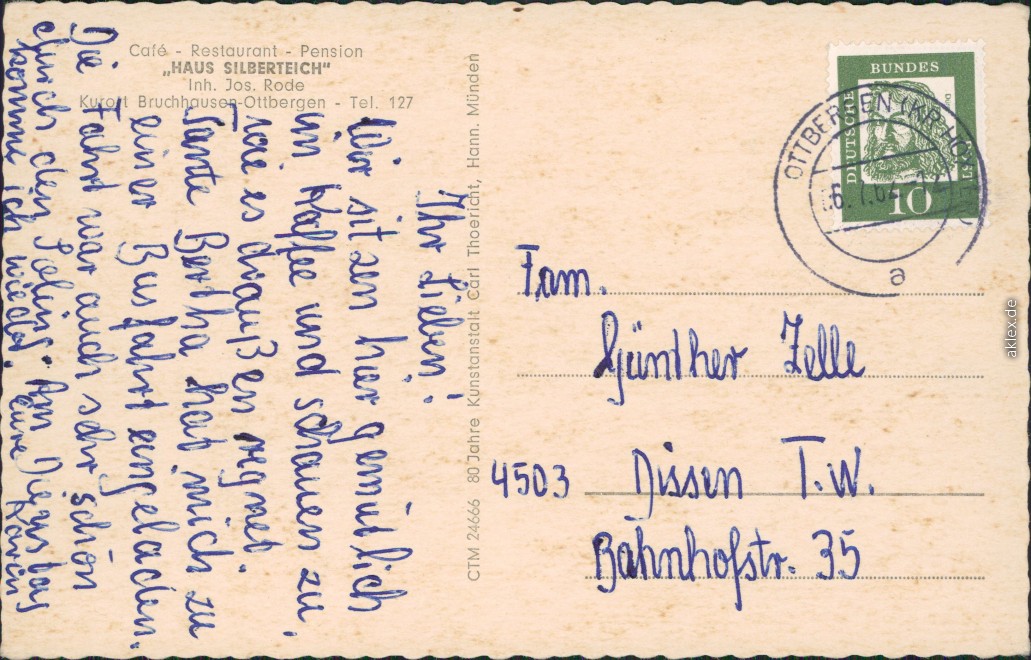 Café - Restaurant - Pension
„HAUS SILBERTEICH"
Inh. Jos. Rode
Kurort Bruchhausen-Ottbergen - Tel. 127
Ihr Lieben!
Wir sitzen hier gemütlich
im Kaffee und schauen zu,
wie es draußen regnet.
Tante Bertha hat mich zu
einer Busfahrt eingeladen.
Die Fahrt war auch sehr schön
durch den Solling. Am Dienstag
komme ich wieder. Eure Karin
CTM 24666 80 Jahre Kunstanstalt Carl Thoericht, Hann. Münden
DEUTSCHE
BUNDES
10
OTTBERGEN (KR HÖXTER)
a
Fam.
Günther Zelle
4503 Dissen T.W.
Bahnhofstr. 35
aklex.de